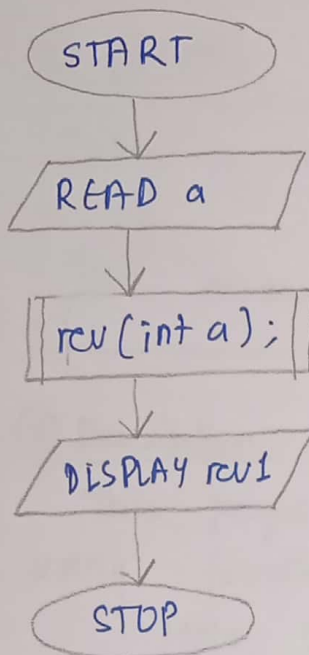 START
READ a
rev(int a);
DISPLAY rev1
STOP